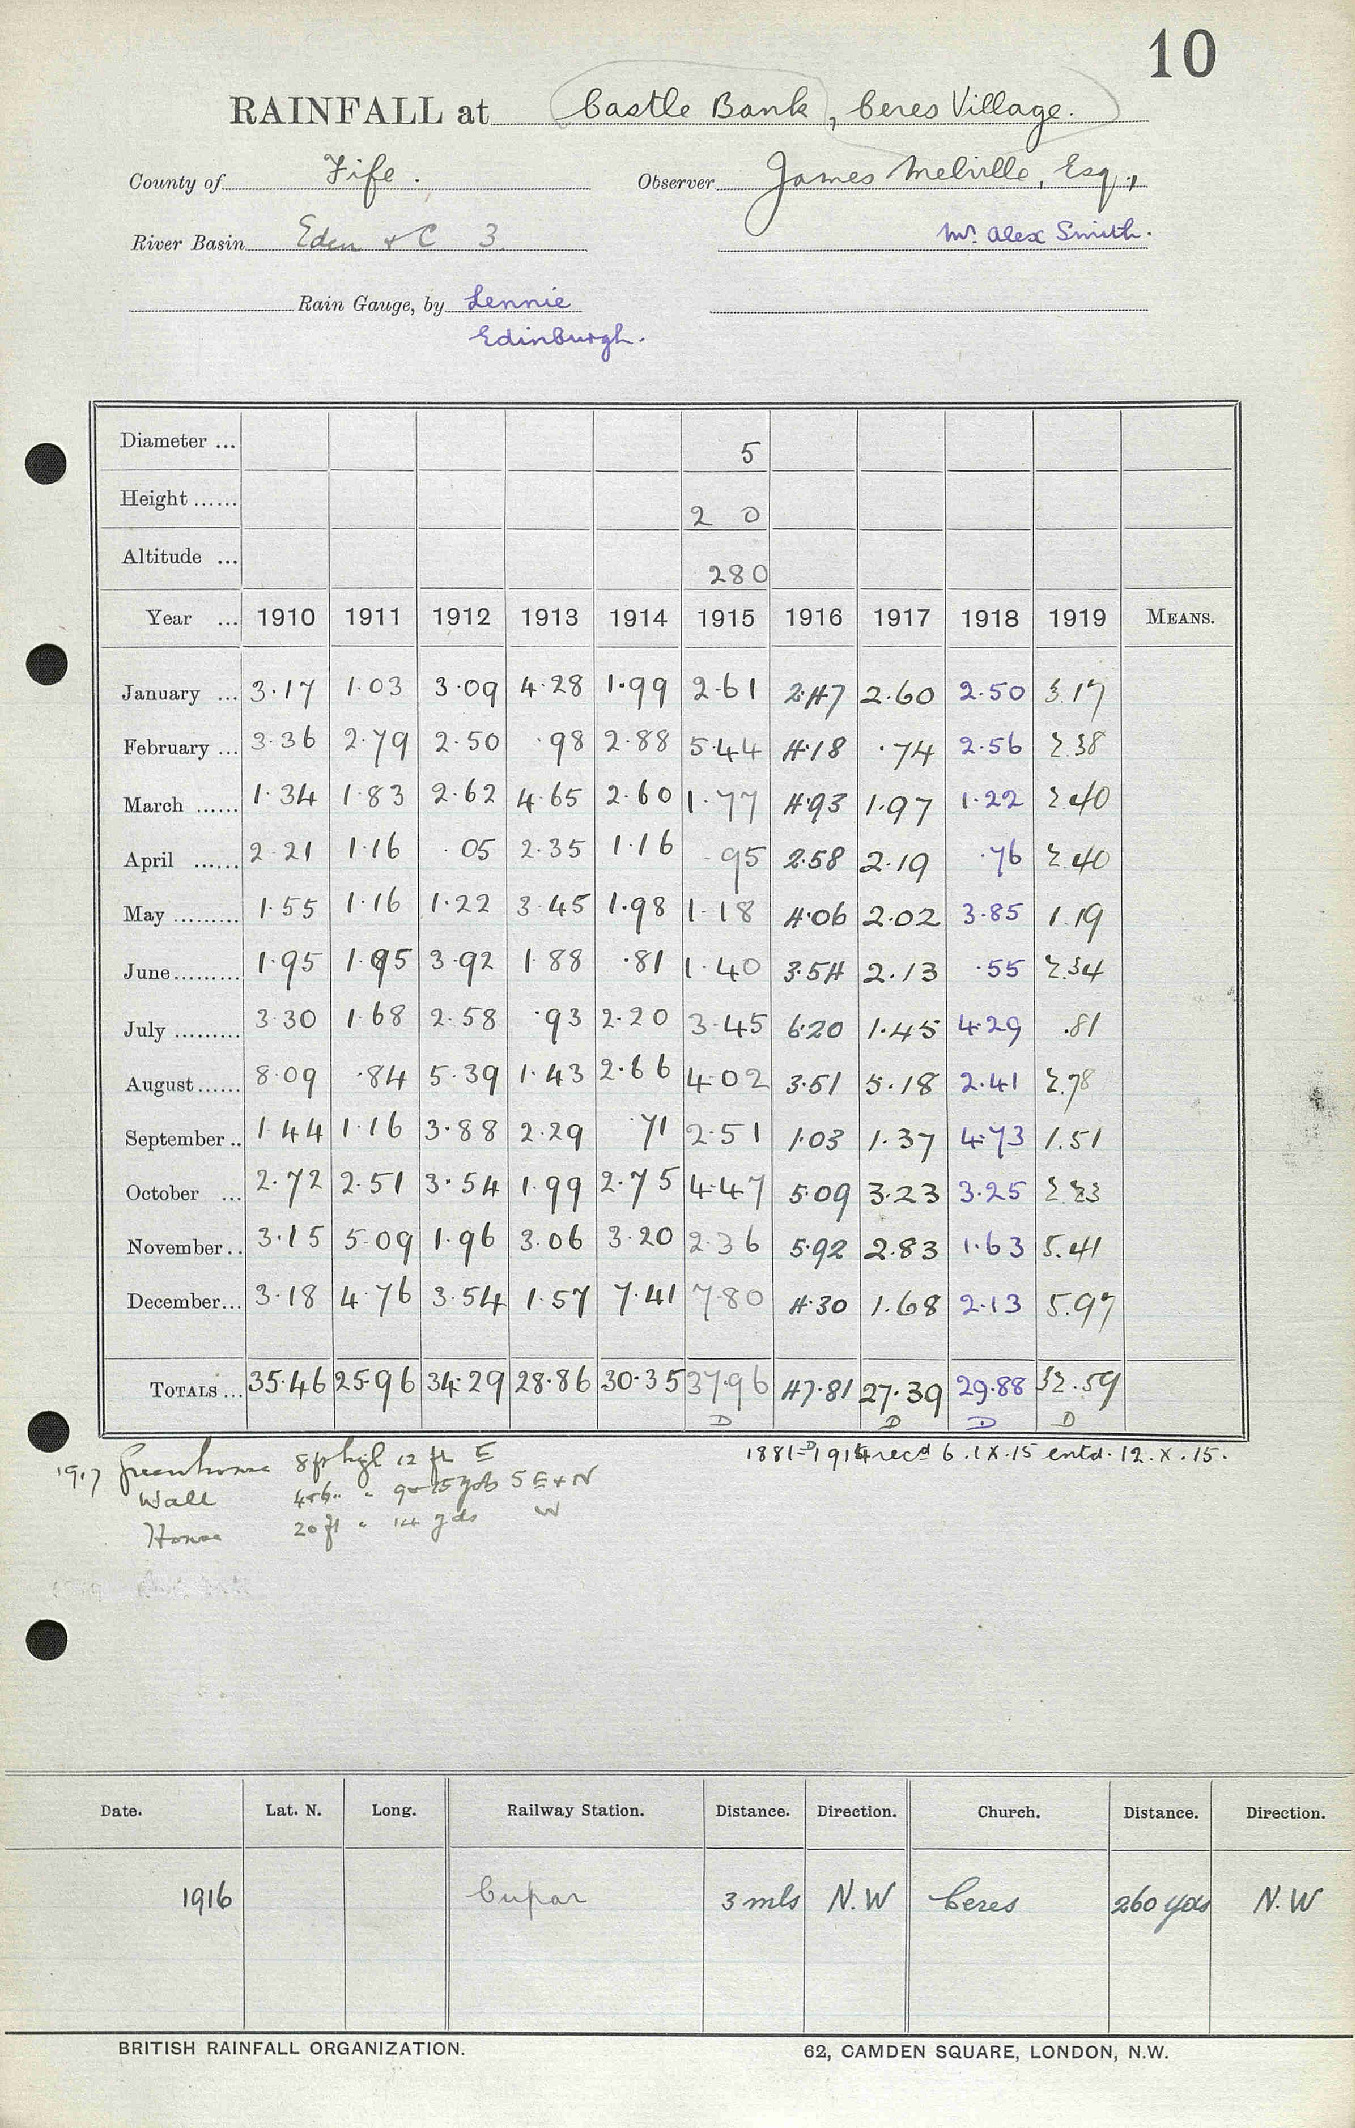 10
RAINFALL at Castle Bank, Ceres Village.
County of Fife. Observer James Melville, Esq.,
River Basin Eden & C 3 Mr. Alex Smith.
Rain Gauge, by Lennie
Edinburgh.
Diameter ... 5
Height ...... 2 0
Altitude ... 280
Year ... 1910 1911 1912 1913 1914 1915 1916 1917 1918 1919 MEANS.
January ... 3.17 1.03 3.09 4.28 1.99 2.61 2.47 2.60 2.50 3.17
February ... 3.36 2.79 2.50 .98 2.88 5.44 4.18 .74 2.56 2.38
March ...... 1.34 1.83 2.62 4.65 2.60 1.77 4.93 1.97 1.22 2.40
April ...... 2.21 1.16 .05 2.35 1.16 .95 2.58 2.19 .76 2.40
May ......... 1.55 1.16 1.22 3.45 1.98 1.18 4.06 2.02 3.85 1.19
June ......... 1.95 1.95 3.92 1.88 .81 1.40 3.54 2.13 .55 2.34
July ......... 3.30 1.68 2.58 .93 2.20 3.45 6.20 1.45 4.29 .81
August ...... 8.09 .84 5.39 1.43 2.66 4.02 3.51 5.18 2.41 2.78
September .. 1.44 1.16 3.88 2.29 .71 2.51 1.03 1.37 4.73 1.51
October ... 2.72 2.51 3.54 1.99 2.75 4.47 5.09 3.23 3.25 2.23
November .. 3.15 5.09 1.96 3.06 3.20 2.36 5.92 2.83 1.63 5.41
December ... 3.18 4.76 3.54 1.57 7.41 7.80 4.30 1.68 2.13 5.97
TOTALS ... 35.46 25.96 34.29 28.86 30.35 37.96 47.81 27.39 29.88 32.59
D D D D
1881-1914 recd 6.IX.15 entd. 12.X.15.
1917 Greenhouse 8ft high 12 ft E
Wall 4 yds S E & N
House 20 ft " 14 yds W
Date. Lat. N. Long. Railway Station. Distance. Direction. Church. Distance. Direction.
1916 Cupar 3 mls N.W Ceres 260 yds N.W
BRITISH RAINFALL ORGANIZATION. 62, CAMDEN SQUARE, LONDON, N.W.